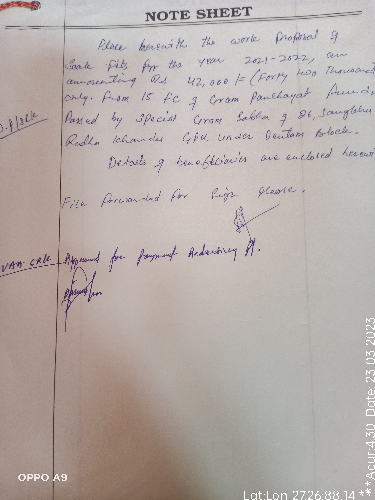 NOTE SHEET
Place herewith the work proposal of
Soak Pits for the year 2021-2022, an
amounting Rs 42,000/= (Forty two thousand)
only. From 15 FC of Gram Panchayat Fund,
Passed by special Gram Sabha of 26, Sangkhu
Radhu Khandu GPU under Dentam Block.
Details of beneficiaries are enclosed herewith
File forwarded for sign please.
VAA. CRK Approved for payment
OPPO A9
Lat:Lon 2726:88.14 ***Acur:4.30 Date: 23 03 2023